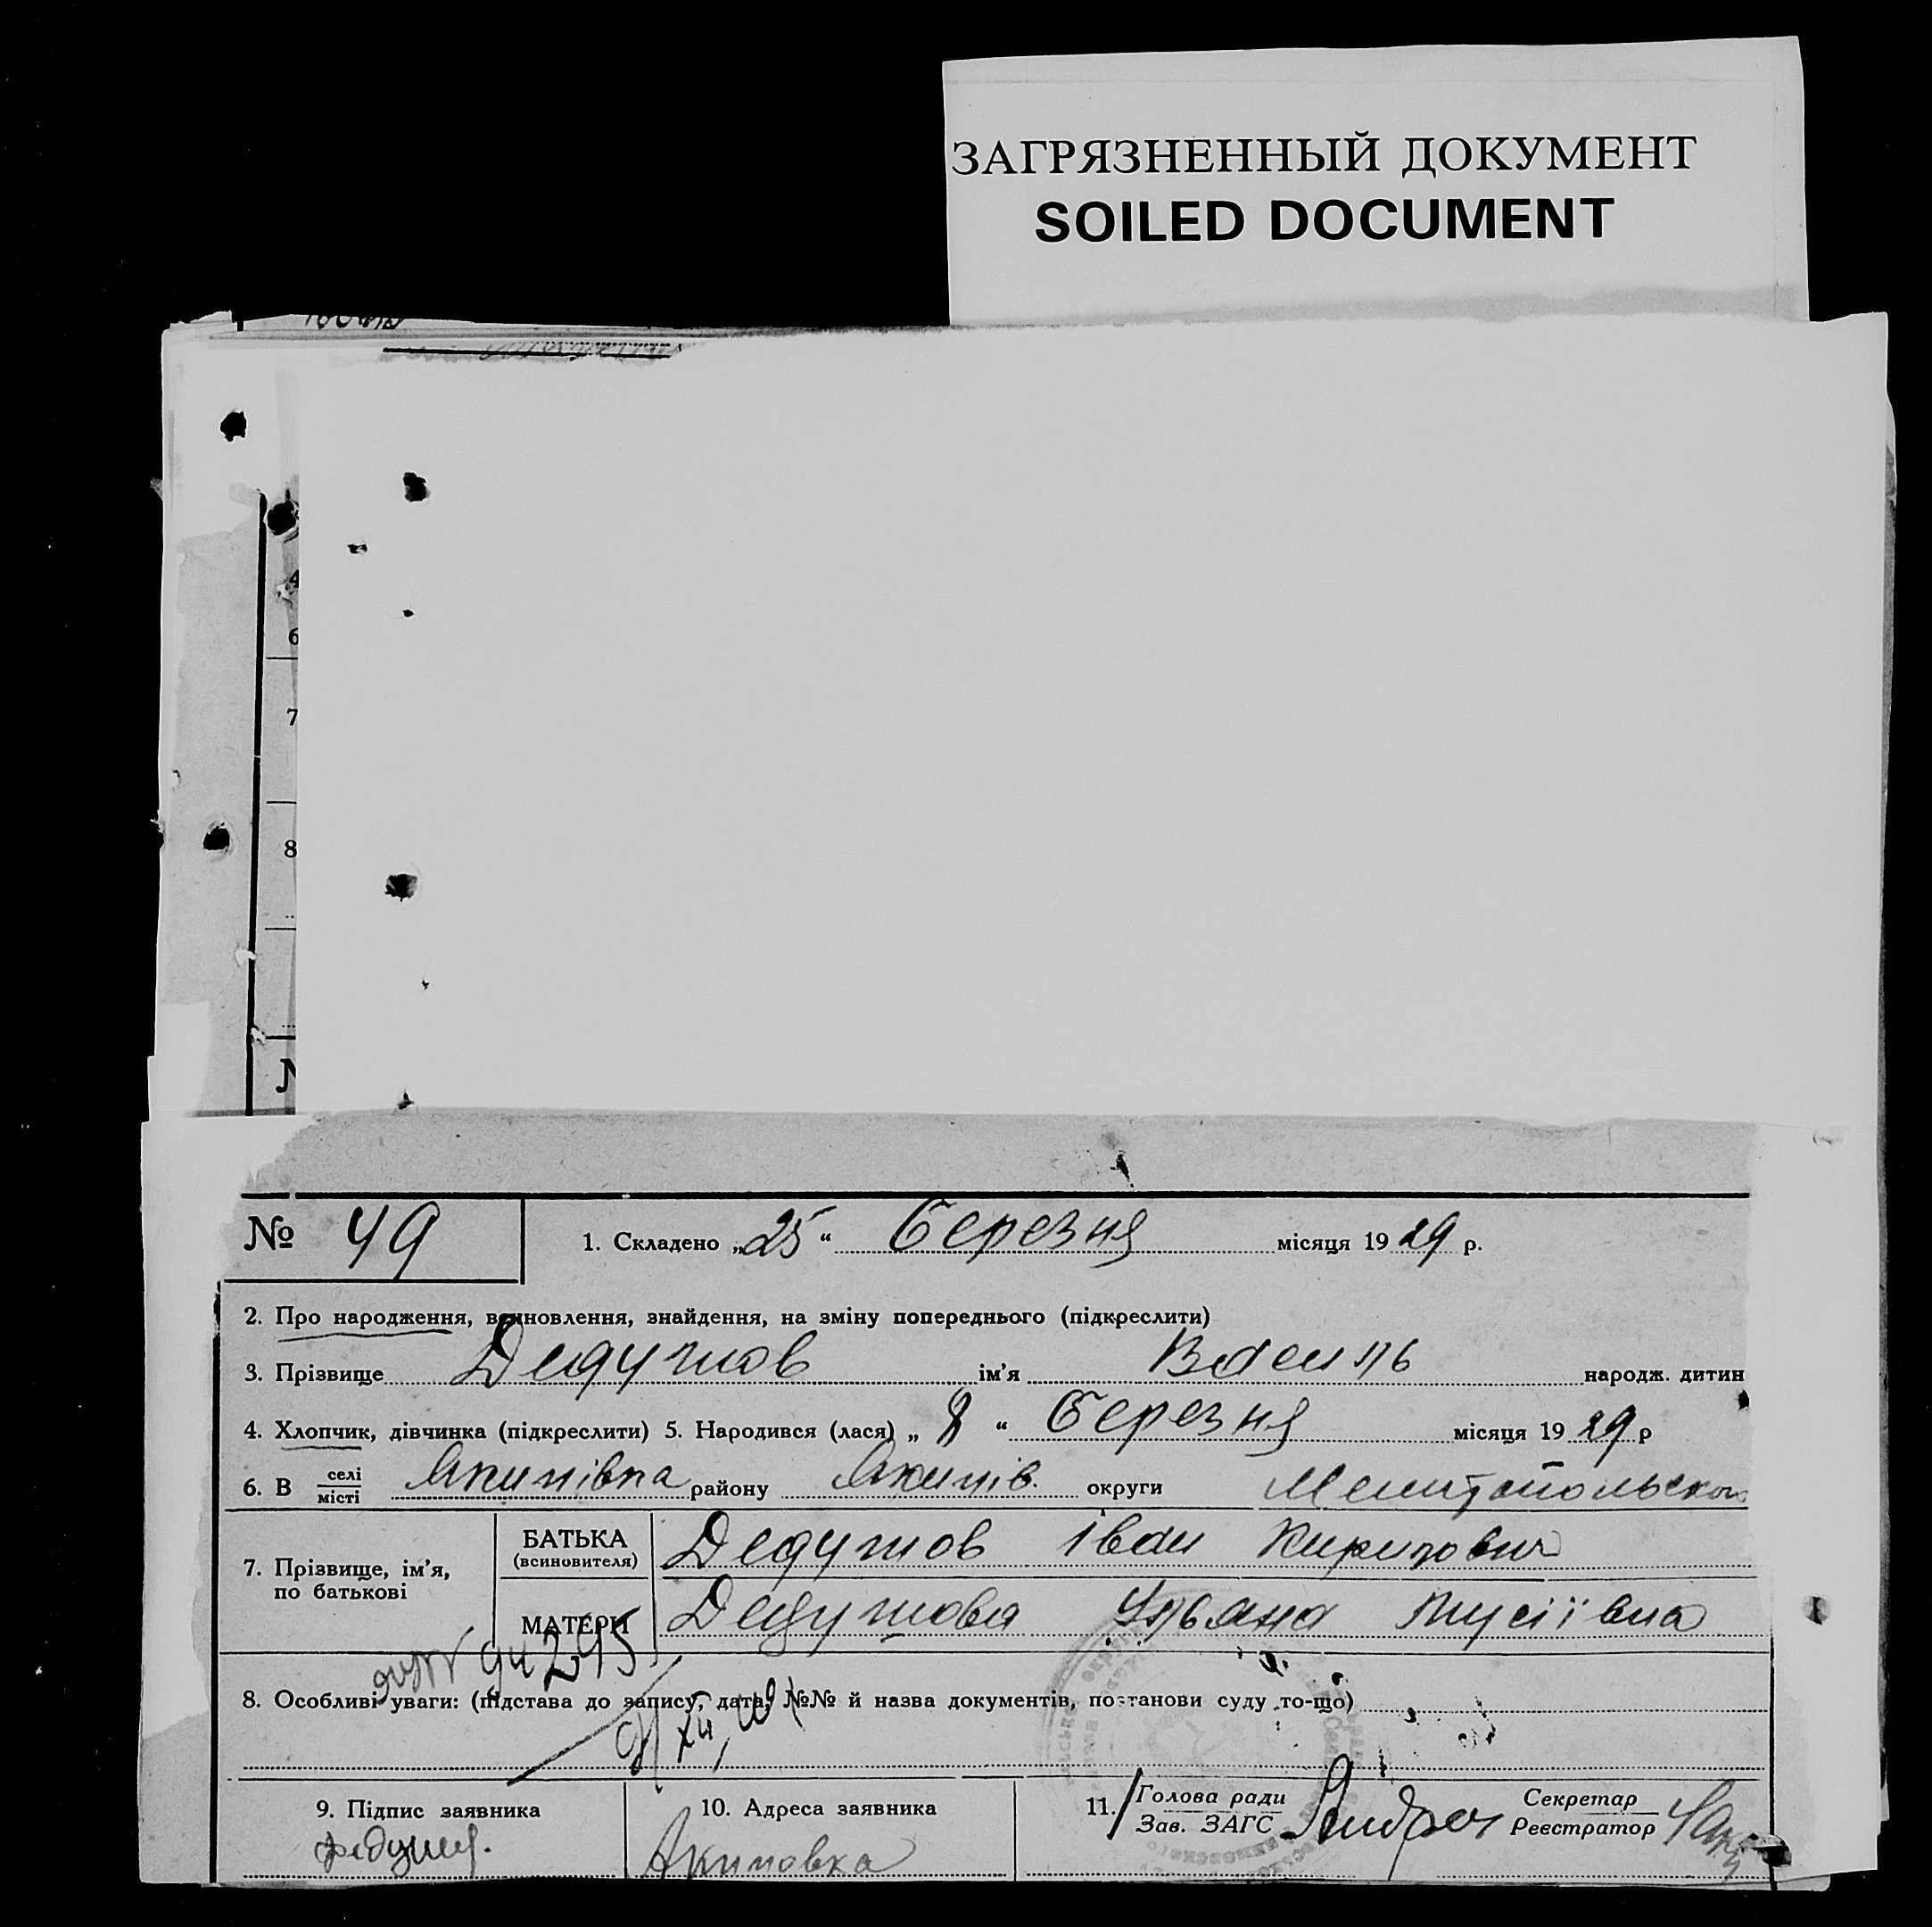 ЗАГРЯЗНЕННЫЙ ДОКУМЕНТ
SOILED DOCUMENT
4
6
7
8
№ 49
1. Складено „25“ березня місяця 1929 р.
2. Про народження, всиновлення, знайдення, на зміну попереднього (підкреслити)
3. Прізвище Дедушов ім'я Василь народж. дитин
4. Хлопчик, дівчинка (підкреслити) 5. Народився (лася) „8“ березня місяця 1929 р
6. В селі/місті Якимівка району Якимів. округи Мелитопольської
7. Прізвище, ім'я, по батькові
БАТЬКА (всиновителя) Дедушов Іван Кирилович
МАТЕРИ Дедушова Ульяна Мусіївна
94295
8. Особливі уваги: (підстава до запису, дата, №№ й назва документів, постанови суду то-що)
9. Підпис заявника
10. Адреса заявника
11. Голова ради
Зав. ЗАГС
Секретар
Реєстратор
Акимовка